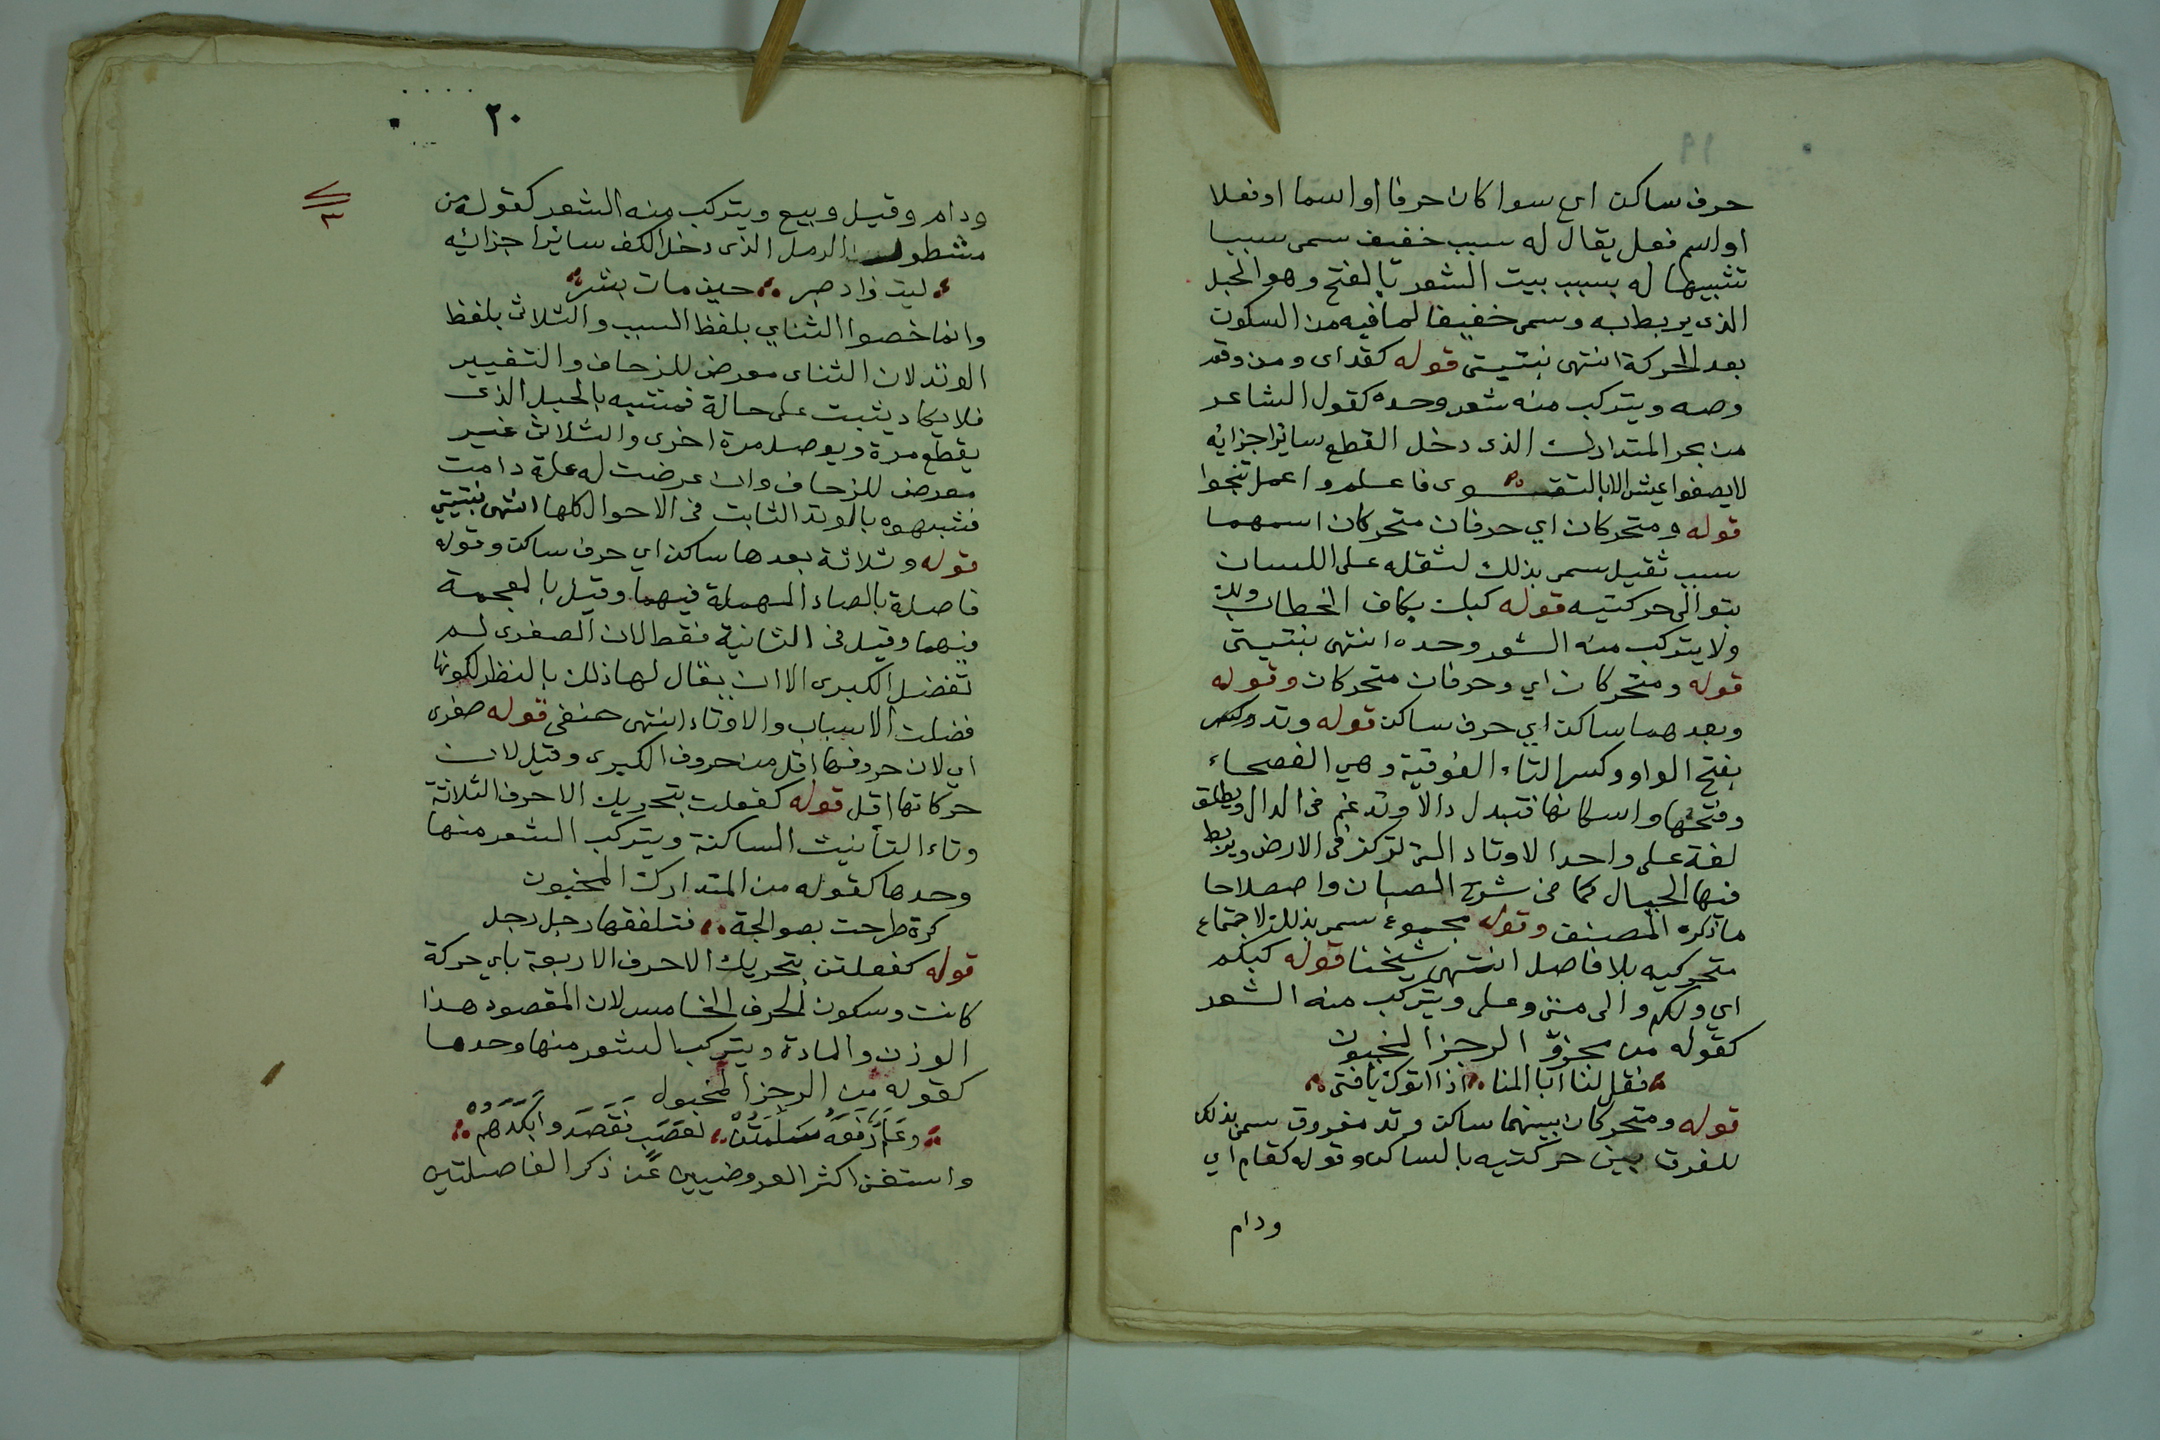 حرف ساكن اي سوا كان حرفا او اسما او فعلا
او اسم فعل يقال له سبب خفيف سمى سببا
تشبيها له بسبب بيت الشعر بالفتح وهو الحبل
الذى يربط به وسمى خفيفا لما فيه من السكون
بعد الحركة انتهى نبتيتى قوله كقد اى ومن وقد
وصه ويتركب منه شعر وحده كقول الشاعر
من بحر المتدارك الذى دخل القطع سائر اجزائه
لا يصفوا عيش الا بالتقوى فاعلم واعمل تنجوا
قوله ومتحركان اي حرفان متحركان اسمهما
سبب ثقيل سمى بذلك لثقله على اللسان
بتوالى حركتيه قوله كبك بكاف الخطاب ولك
ولا يتركب منه الشعر وحده انتهى نبتيتى
قوله ومتحركان اي وحرفان متحركان وقوله
وبعدهما ساكن اي حرف ساكن قوله وتد
بفتح الواو وكسر التاء الفوقية وهي الفصحاء
وفتحها واسكانها فتبدل دالا وتدغم فى الدال ويطلق
لغة على واحد الاوتاد التى تركز فى الارض ويربط
فيها الحبال كما فى شرح الصبان واصطلاحا
ما ذكره المصنف وقوله مجموع سمى بذلك لاجتماع
متحركيه بلا فاصل انتهى شيخنا قوله كبكم
اي ولكم والى متى وعلى ويتركب منه الشعر
كقوله من مجزؤ الرجز المخبون
فقل لنا ابا المنا اذا اتوك يا فتى
قوله ومتحركان بينهما ساكن وتد مفروق سمى بذلك
للفرق بين حركتيه بالساكن وقوله كقام اي
ودام
٢٠
ودام وقيل وبيع ويتركب منه الشعر كقوله من
مشطور الرمل الذى دخل الكف سائر اجزائه
ليت زاد حين مات بشر
وانما خصوا الثنائي بلفظ السبب والثلاثى بلفظ
الوتد لان الثناى معرض للزحاف والتغيير
فلا يكاد يثبت على حالة فشبه بالحبل الذى
يقطع مرة ويوصل مرة اخرى والثلاثى غير
معرض للزحاف وان عرضت له علة دامت
فشبهوه بالوتد الثابت فى الاحوال كلها انتهى نبتيتي
قوله وثلاثة بعدها ساكن اي حرف ساكن وقوله
فاصلة بالصاد المهملة فيهما وقيل بالمعجمة
فيهما وقيل فى الثانية فقط لان الصغرى لم
تفضل الكبرى الا ان يقال لها ذلك بالنظر لكونها
فضلت الاسباب والاوتاد انتهى حنفى قوله صغرى
اي لان حروفها اقل من حروف الكبرى وقيل لان
حركاتها اقل قوله كفعلت بتحريك الاحرف الثلاثة
وتاء التأنيث الساكنة ويتركب الشعر منها
وحدها كقوله من المتدارك المخبون
كرة طرحت بصوالجة فتلقفها رجل رجل
قوله كفعلتن بتحريك الاحرف الاربعة باي حركة
كانت وسكون الحرف الخامس لان المقصود هذا
الوزن والمادة ويتركب الشعر منها وحدها
كقوله من الرجز المخبول
واستغنى اكثر العروضيين عن ذكر الفاصلتين